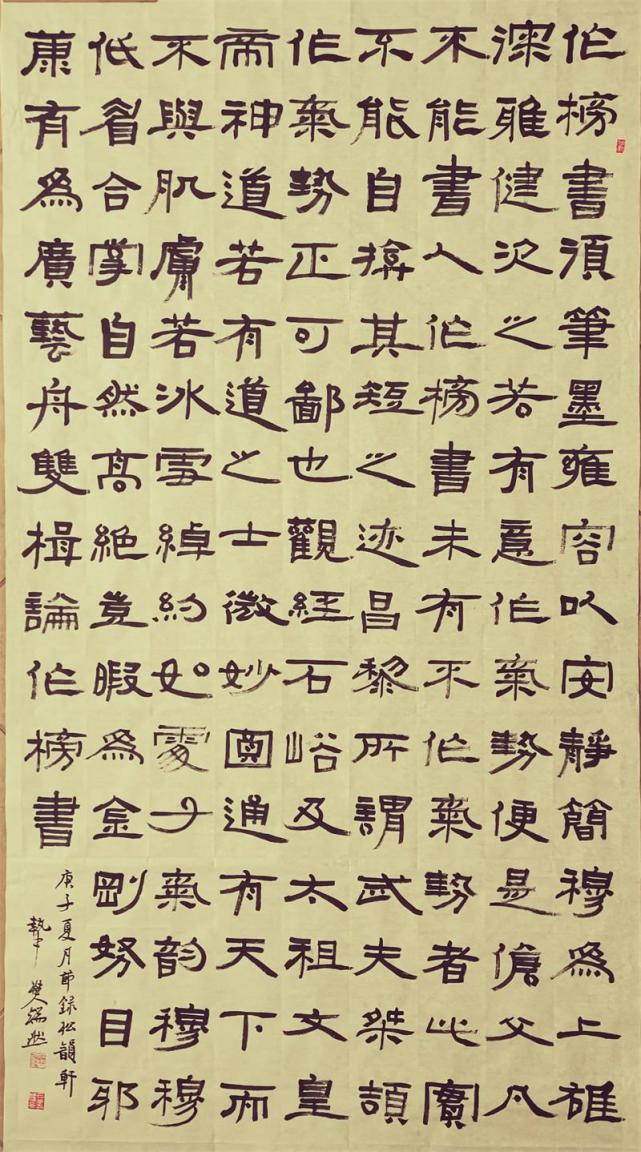 作榜書須筆墨雍容以安靜簡穆為上雄
深雅健次之若有意作氣勢便是傖父凡
不能書人作榜書未有不作氣勢者此實
不能自揜其短之迹昌黎所謂武夫桀頡
作氣勢正可鄙也觀經石峪及太祖文皇
帝神道若有道之士微妙圓通有天下而
不與肌膚若冰雪綽約如處子氣韵穆穆
低眉合掌自然高絕豈暇為金剛努目耶
康有為廣藝舟雙楫論作榜書
庚子夏月節錄松韻軒